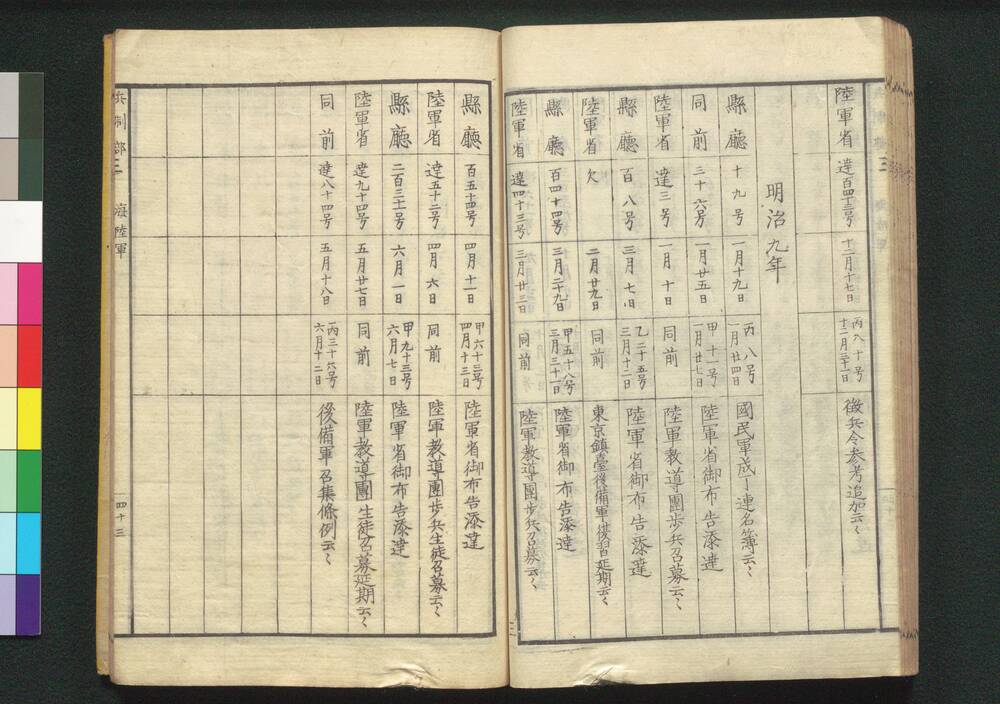 陸軍省 達百四十三号 十二月十七日 丙八十号 十二月三十一日 徴兵令参考追加云々
明治九年
縣廳 十九号 一月十九日 丙八号 一月廿四日 國民軍成丁連名簿云々
同前 三十六号 一月廿五日 甲十一号 一月廿七日 陸軍省御布告添達
陸軍省 達三号 一月十日 同前 陸軍教導團歩兵召募云々
縣廳 百八号 三月七日 乙二十五号 三月十二日 陸軍省御布告添達
陸軍省 欠 二月廿九日 同前 東京鎮臺後備軍復習延期云々
縣廳 百四十四号 三月二十九日 甲五十八号 三月三十一日 陸軍省御布告添達
陸軍省 達四十三号 三月廿三日 同前 陸軍教導團歩兵召募云々
縣廳 百五十四号 四月十一日 甲六十三号 四月十三日 陸軍省御布告添達
陸軍省 達五十二号 四月六日 同前 陸軍教導團歩兵生徒召募云々
縣廳 二百三十一号 六月一日 甲九十三号 六月七日 陸軍省御布告添達
陸軍省 達九十四号 五月廿七日 同前 陸軍教導團生徒召募延期云々
同前 達八十四号 五月十八日 丙三十六号 六月十二日 後備軍召集條例云々
兵制部三 海陸軍 四十三